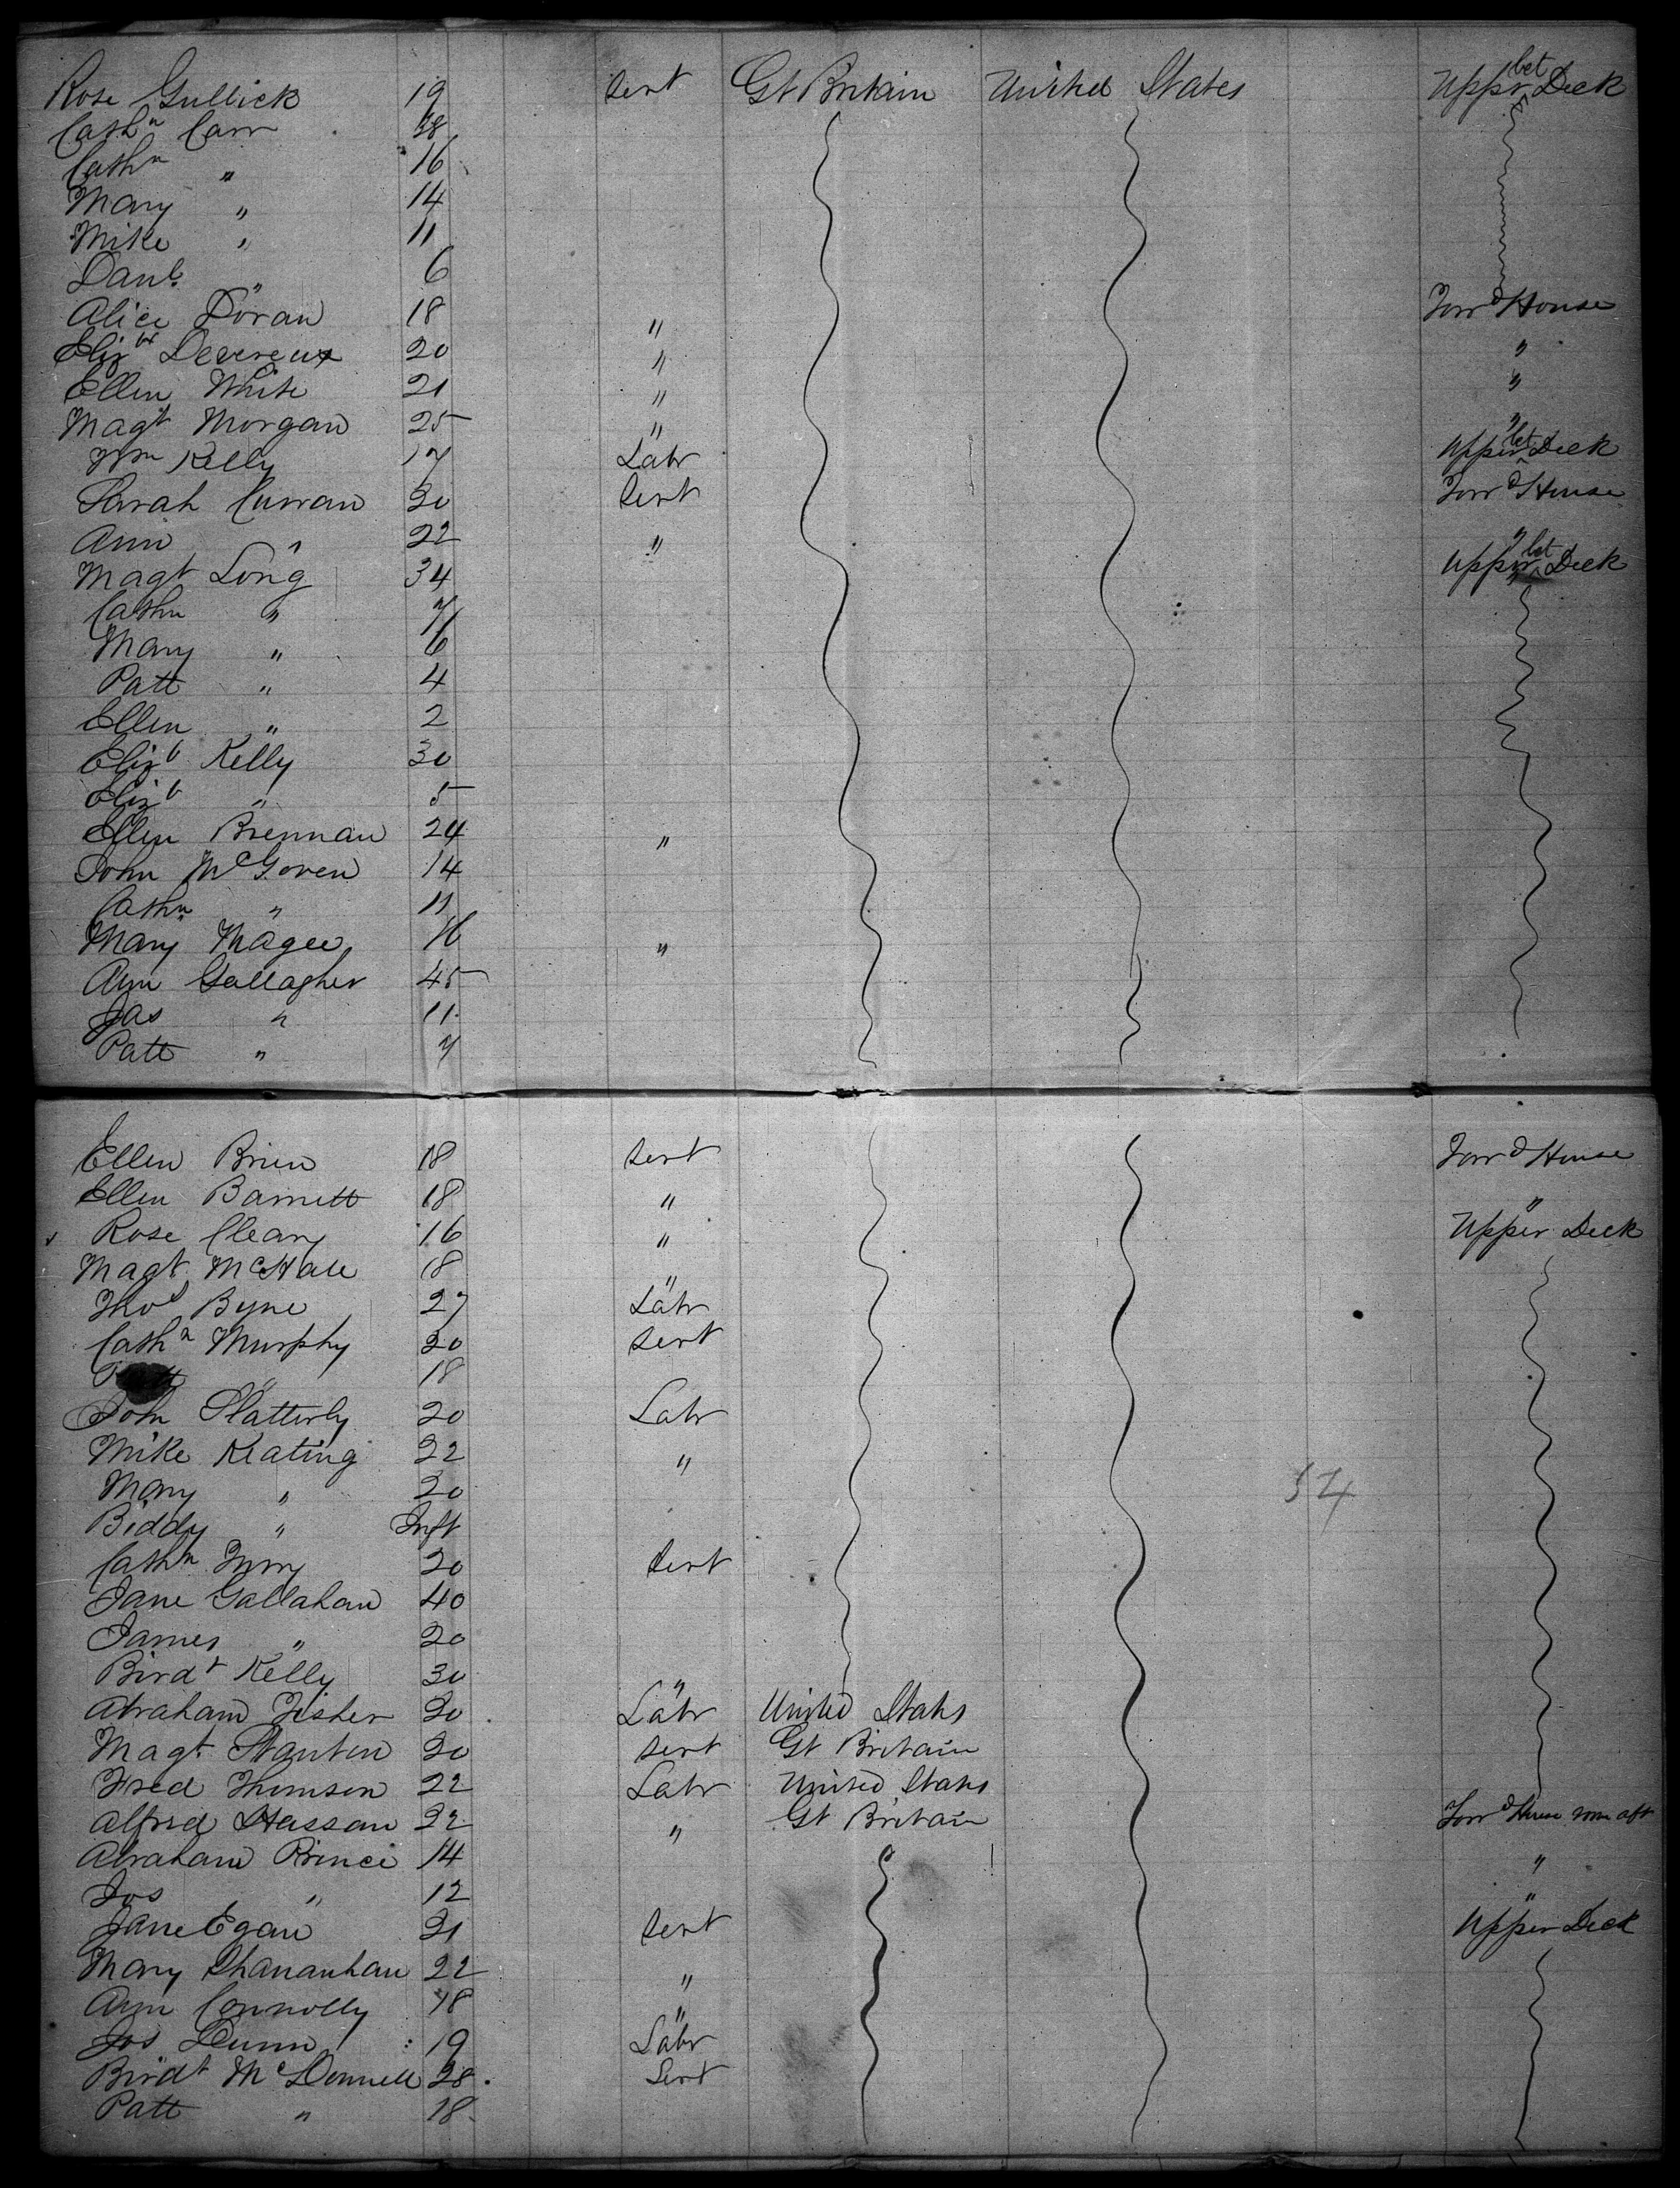 Rose Gullick 19 Servt Gt Britain United States Upper bet Deck
Cathn Carr 38
Cathn " 16
Mary " 14
Mike " 11
Danl. " 6
Alice Doran 18 " Forrd House
Elizth Devereux 20 " "
Ellen White 21 " "
Magt Morgan 25 " "
Wm Kelly 17 Labr Upper bet Deck
Sarah Curran 30 Servt Forrd House
Ann " 22 " "
Magt Long 34 Upper bet Deck
Cathn " 7
Mary " 6
Patt " 4
Ellen " 2
Elizb Kelly 30
Elizb " 5
Ellen Brennan 24 "
John McGoven 14
Cathn " 11
Mary Magee 16 "
Ann Gallagher 45
Jas " 11
Patt " 7
Ellen Brien 18 Servt Forrd House
Ellen Barnett 18 " "
Rose Cleary 16 " Upper Deck
Magt McHale 18 "
Thos Byne 27 Labr
Cathn Murphy 20 Servt
" 18
John Slatterly 20 Labr
Mike Keating 22 "
Mary " 20
Biddy " Inft
Cathn 20 Servt
Jane Gallahan 40
James " 20
Birdt Kelly 30 "
Abraham Fisher 30 Labr United States
Magt. Stanton 30 Servt Gt Britain
Fred Thomson 22 Labr United States
Alfred Hassan 22 " Gt Britain Forrd House room aft
Abraham Prince 14 "
Jos " 12 "
Jane Egan 31 Servt Upper Deck
Mary Shananhan 22 "
Ann Connolly 18 "
Jos Dunn 19 Labr
Birdt McDonnell 28 Servt
Patt " 18